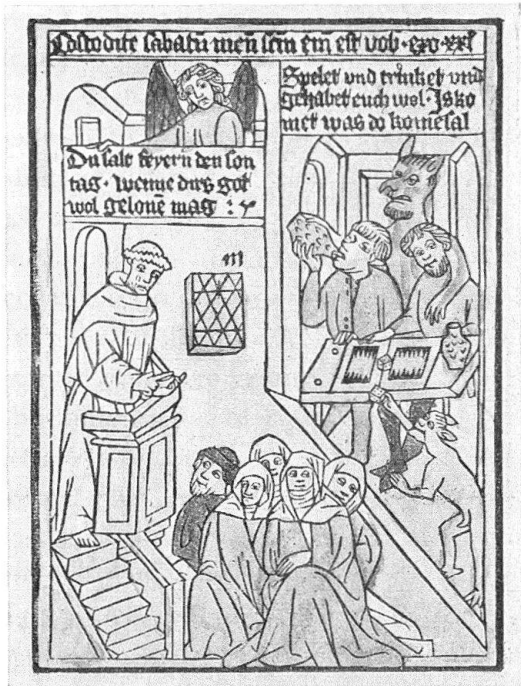 Costodite sabatū meū scm em̄ est vob · exo · xxxi
Du salt feyern den son
tag · wenne dirs got
wol gelonē mag :
Spelet vnd trinket vnd
gehabet euch wol · Is ko
met was do komē sal
III